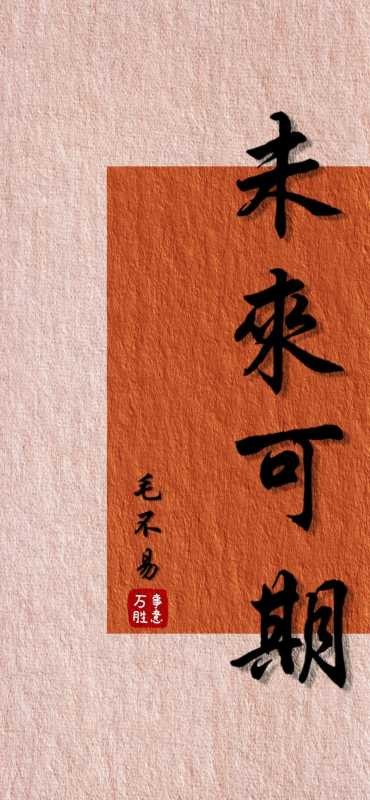 未來可期
毛不易
事意
万胜